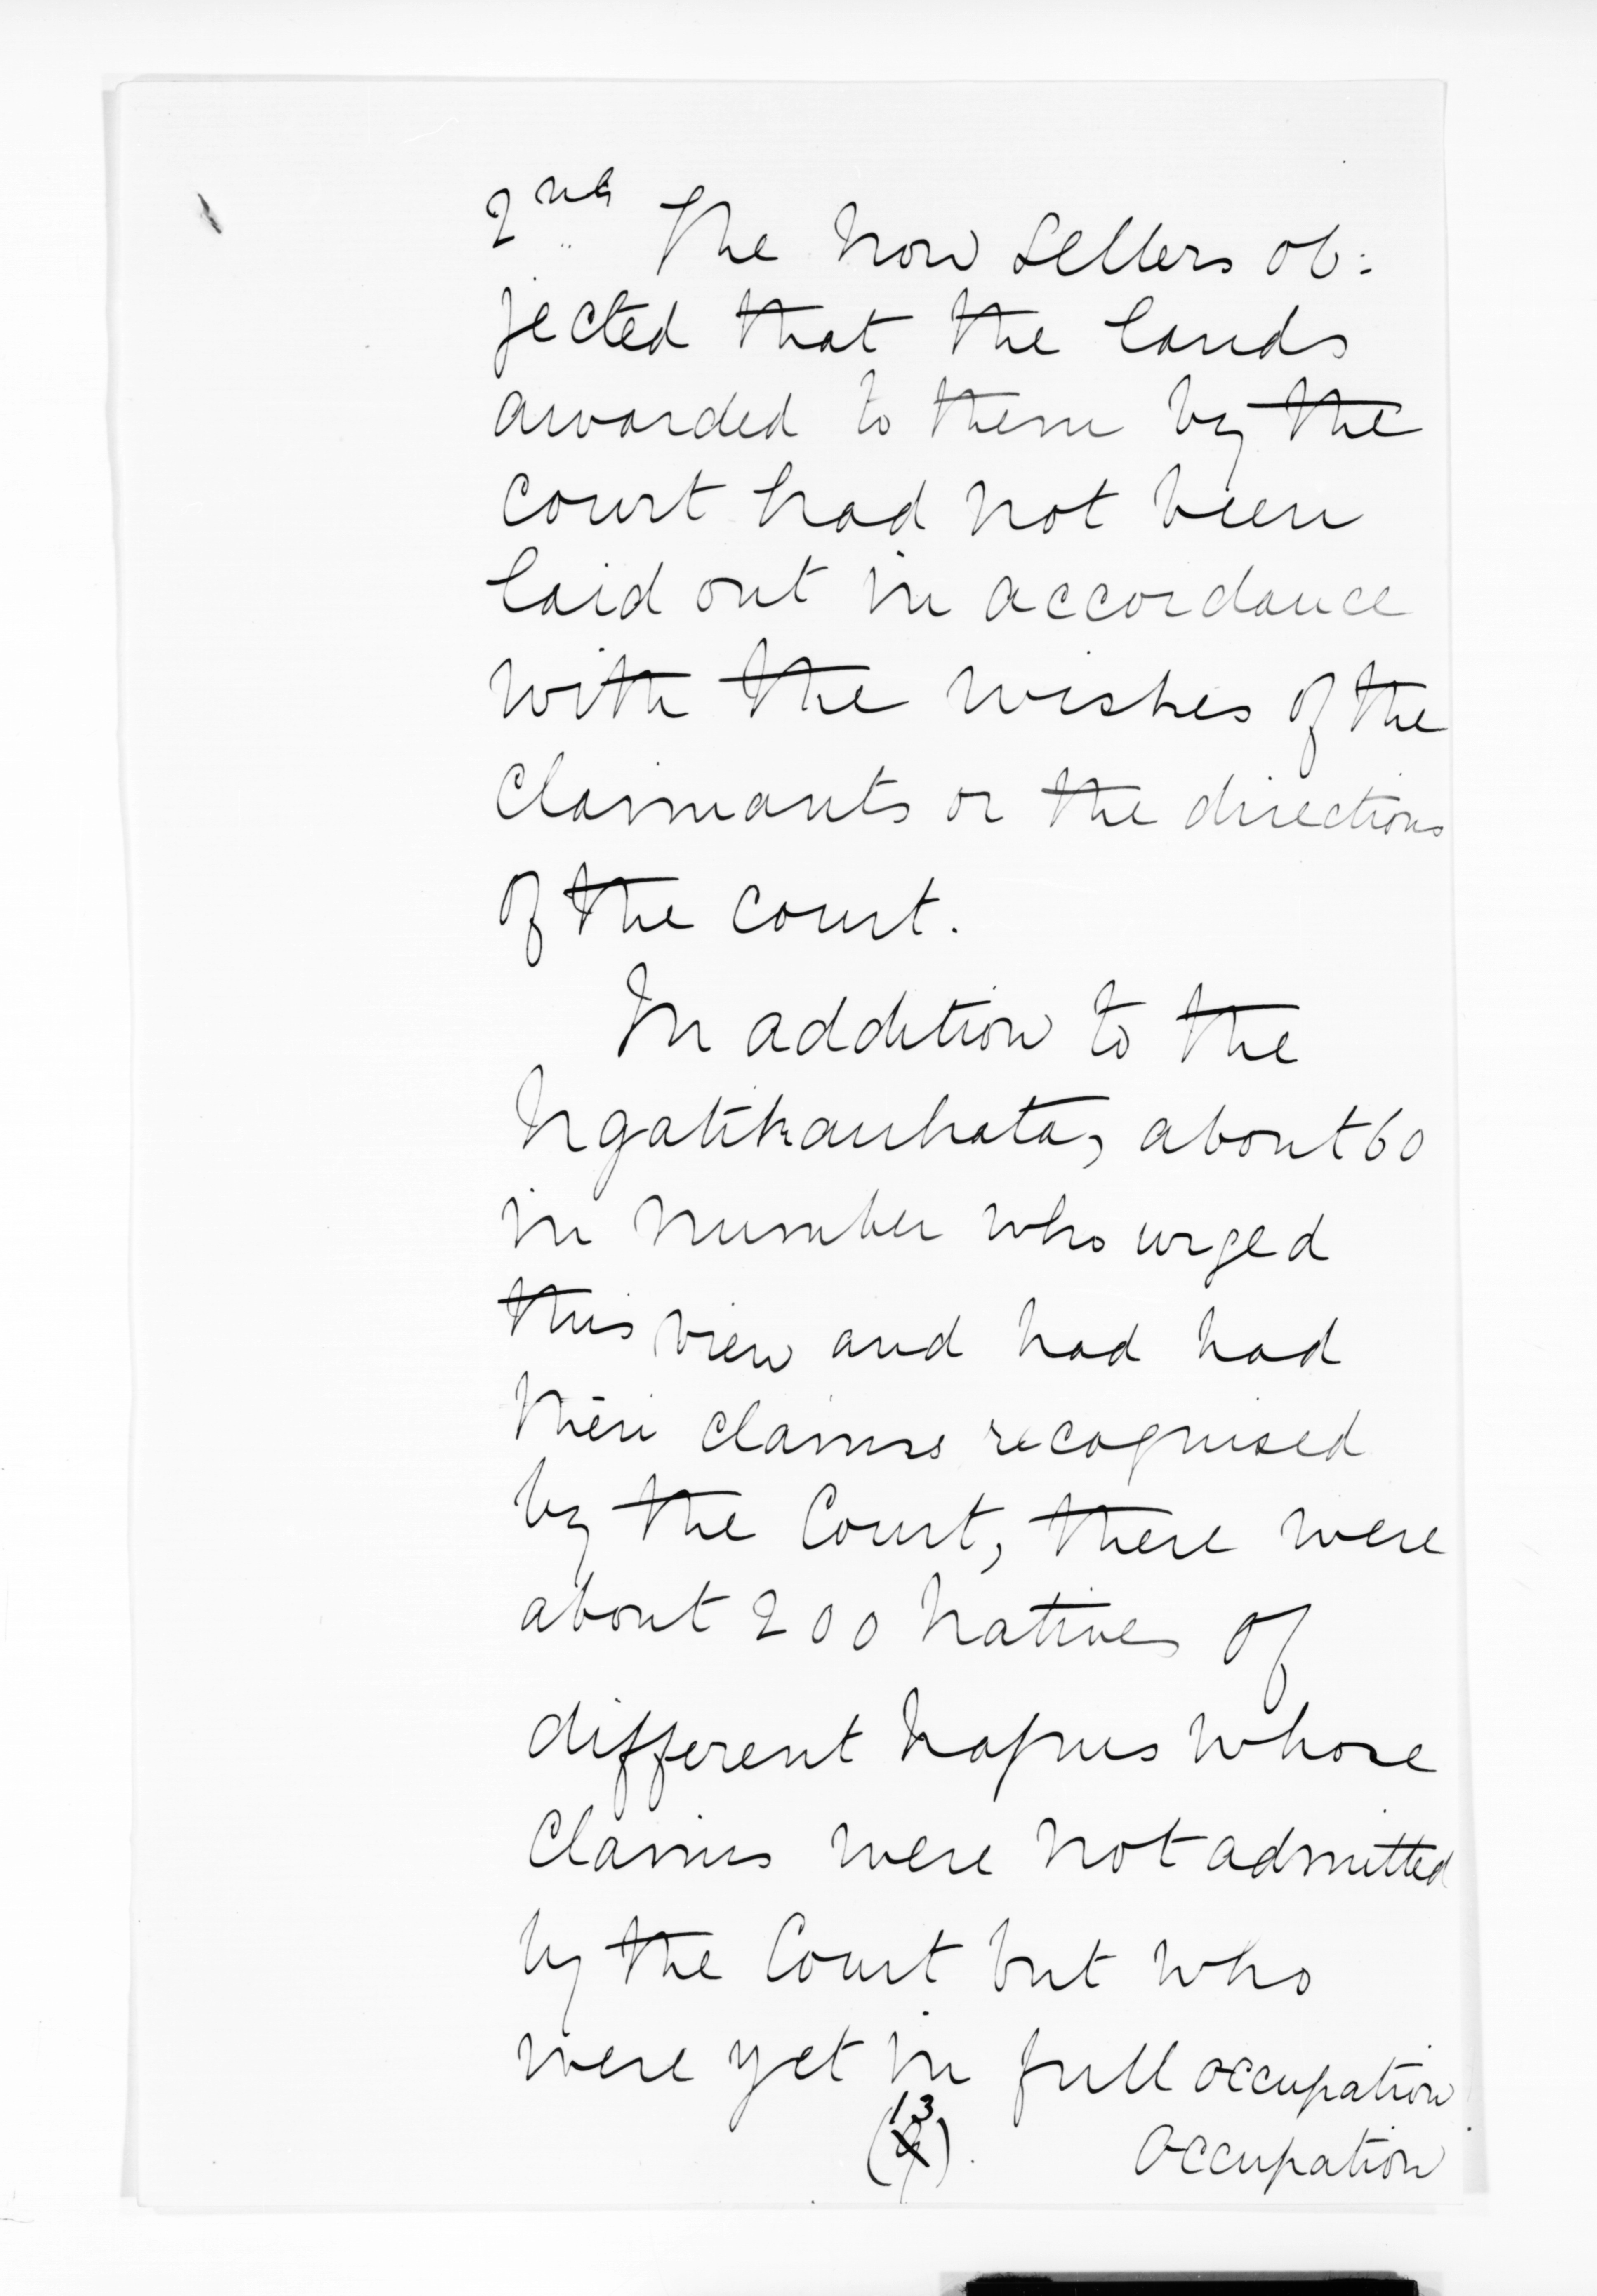 2nd The Non Sellers ob:
jected that the lands
awarded to them by the
Court had not been
laid out in accordance
with the wishes of the
Claimants or the directions
of the Court.
In addition to the
Ngatikauhata, about 60
in number who urged
this view and had had
their claims recognised
by the Court, there were
about 200 Natives of
different hapus whose
Claims were not admitted
by the Court but who
were yet in full occupation
(13)
Occupation